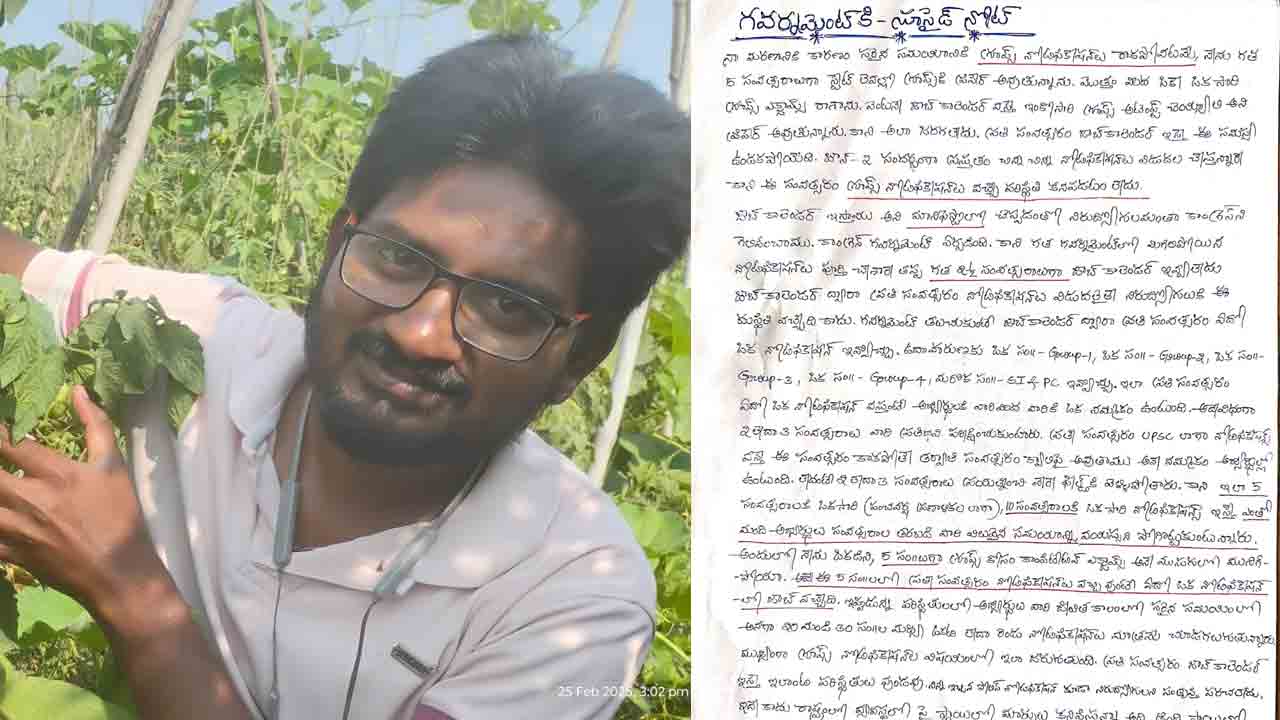 గవర్నమెంట్ కి - సూసైడ్ నోట్
నా మరణానికి కారణం సరైన సమయానికి గ్రూప్స్ నోటిఫికేషన్లు రాకపోవటమే, నేను గత
5 సంవత్సరాలుగా స్టేట్ లెవల్లో గ్రూప్స్ కి ప్రిపేర్ అవుతున్నాను. మొత్తం మీద ఒకే ఒకసారి
గ్రూప్స్ ఎగ్జామ్స్ రాశాను. వెంటనే జాబ్ కాలెండర్ వస్తే ఇంకోసారి గ్రూప్స్ అటెంప్ట్ చెయ్యాలి అని
ప్రిపేర్ అవుతున్నాను. కాని అలా జరగలేదు. ప్రతి సంవత్సరం జాబ్ కాలెండర్ ఇస్తే ఈ సమస్య
ఉండకపోయేది. జూన్-2 సందర్భంగా ప్రస్తుతం చిన్న చిన్న నోటిఫికేషన్లు విడుదల చేస్తున్నారు
కాని ఈ సంవత్సరం గ్రూప్స్ నోటిఫికేషన్లు వచ్చే పరిస్థితి కనపడటం లేదు.
జాబ్ కాలెండర్ ఇస్తాము అని మానిఫెస్టోలో చెప్పడంతో నిరుద్యోగులమంతా కాంగ్రెస్ ని
గెలిపించాము. కాంగ్రెస్ గవర్నమెంట్ ఏర్పడింది. కాని గత గవర్నమెంట్ లో మిగిలిపోయిన
నోటిఫికేషన్లు పూర్తి చేశారే తప్ప గత ఇన్ని సంవత్సరాలుగా జాబ్ కాలెండర్ ఇవ్వలేదు
జాబ్ కాలెండర్ ద్వారా ప్రతి సంవత్సరం నోటిఫికేషన్లు విడుదలైతే నిరుద్యోగులకి ఈ
దుస్థితి వచ్చేది కాదు. గవర్నమెంట్ తలచుకుంటే జాబ్ కాలెండర్ ద్వారా ప్రతి సంవత్సరం ఏదో
ఒక నోటిఫికేషన్ ఇవ్వొచ్చు. ఉదాహరణకు ఒక సం॥ - Group-1, ఒక సం॥ - Group-2, ఒక సం॥ -
Group-3, ఒక సం॥ - Group-4, మరొక సం॥ - SI & PC ఇవ్వొచ్చు. ఇలా ప్రతి సంవత్సరం
ఏదో ఒక నోటిఫికేషన్ వస్తుంటే అభ్యర్థులకి వారిమీద వారికి ఒక నమ్మకం ఉంటుంది.
2 లేదా 3 సంవత్సరాలు వారి ప్రతిభని పరీక్షించుకుంటారు. ప్రతి సంవత్సరం UPSC లాగా నోటిఫికేషన్స్
వస్తే ఈ సంవత్సరం కాకపోతే తర్వాత సంవత్సరం క్వాలిఫై అవుతాము అనే నమ్మకం అభ్యర్థుల్లో
ఉంటుంది. లేదంటే 2 లేదా 3 సంవత్సరాలు ప్రయత్నించి వెళ్ళిపోతారు. కాని ఇలా 5
సంవత్సరాలకి ఒకసారి (పంచవర్ష ప్రణాళికల లాగా), 10 సంవత్సరాలకి ఒకసారి నోటిఫికేషన్స్ ఇస్తే ఎంతో
మంది అభ్యర్థులు సంవత్సరాల తరబడి వారి విలువైన సమయాన్ని, వయస్సుని పోగొట్టుకుంటున్నారు.
అందులో నేను ఒకడిని, 5 సం॥లుగా గ్రూప్స్ కోసం కాంపిటీటివ్ ఎగ్జామ్స్ అనే ముసుగులో మునిగి-
-పోయా. అదే ఈ 5 సం॥లలో ప్రతి సంవత్సరం నోటిఫికేషన్లు వచ్చి వుంటే ఏదో ఒక నోటిఫికేషన్
-లో జాబ్ వచ్చేది. ఇప్పుడున్న పరిస్థితులలో అభ్యర్థులు వారి జీవిత కాలంలో సరైన సమయంలో
అనగా 20 నుండి 30 సం॥ల మధ్య ఒకటి లేదా రెండు నోటిఫికేషన్లు మాత్రమే చూడగలుగుతున్నారు
ముఖ్యంగా గ్రూప్స్ నోటిఫికేషన్ల విషయంలో ఇలా జరుగుతుంది. ప్రతి సంవత్సరం జాబ్ కాలెండర్
ఇస్తే ఇలాంటి పరిస్థితులు వుండవు. నోటిఫికేషన్ కూడా నిరుద్యోగులని
25 Feb 2025, 3:02 pm